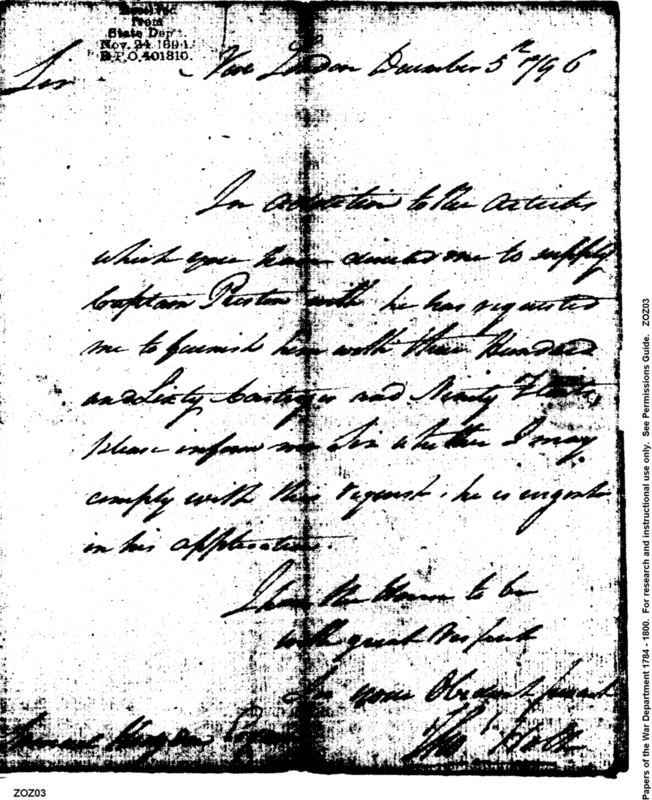 Received
from
State Dep't.
Nov. 24 1894.
R.P.O. 401310.
New London December 5th 1796
Sir
In addition to the Articles
which you have directed me to supply
Captain Preston with he has requested
me to furnish him with three Hundred
and Sixty Cartriges and Ninety Flints,
please inform me Sir whether I may
comply with this request, he is urgent
in his application.
I have the Honor to be
with great Respect
Sir your Obedient Servant
Samuel Hodgdon
ZOZ03
Papers of the War Department 1784 - 1800. For research and instructional use only. See Permissions Guide. ZOZ03